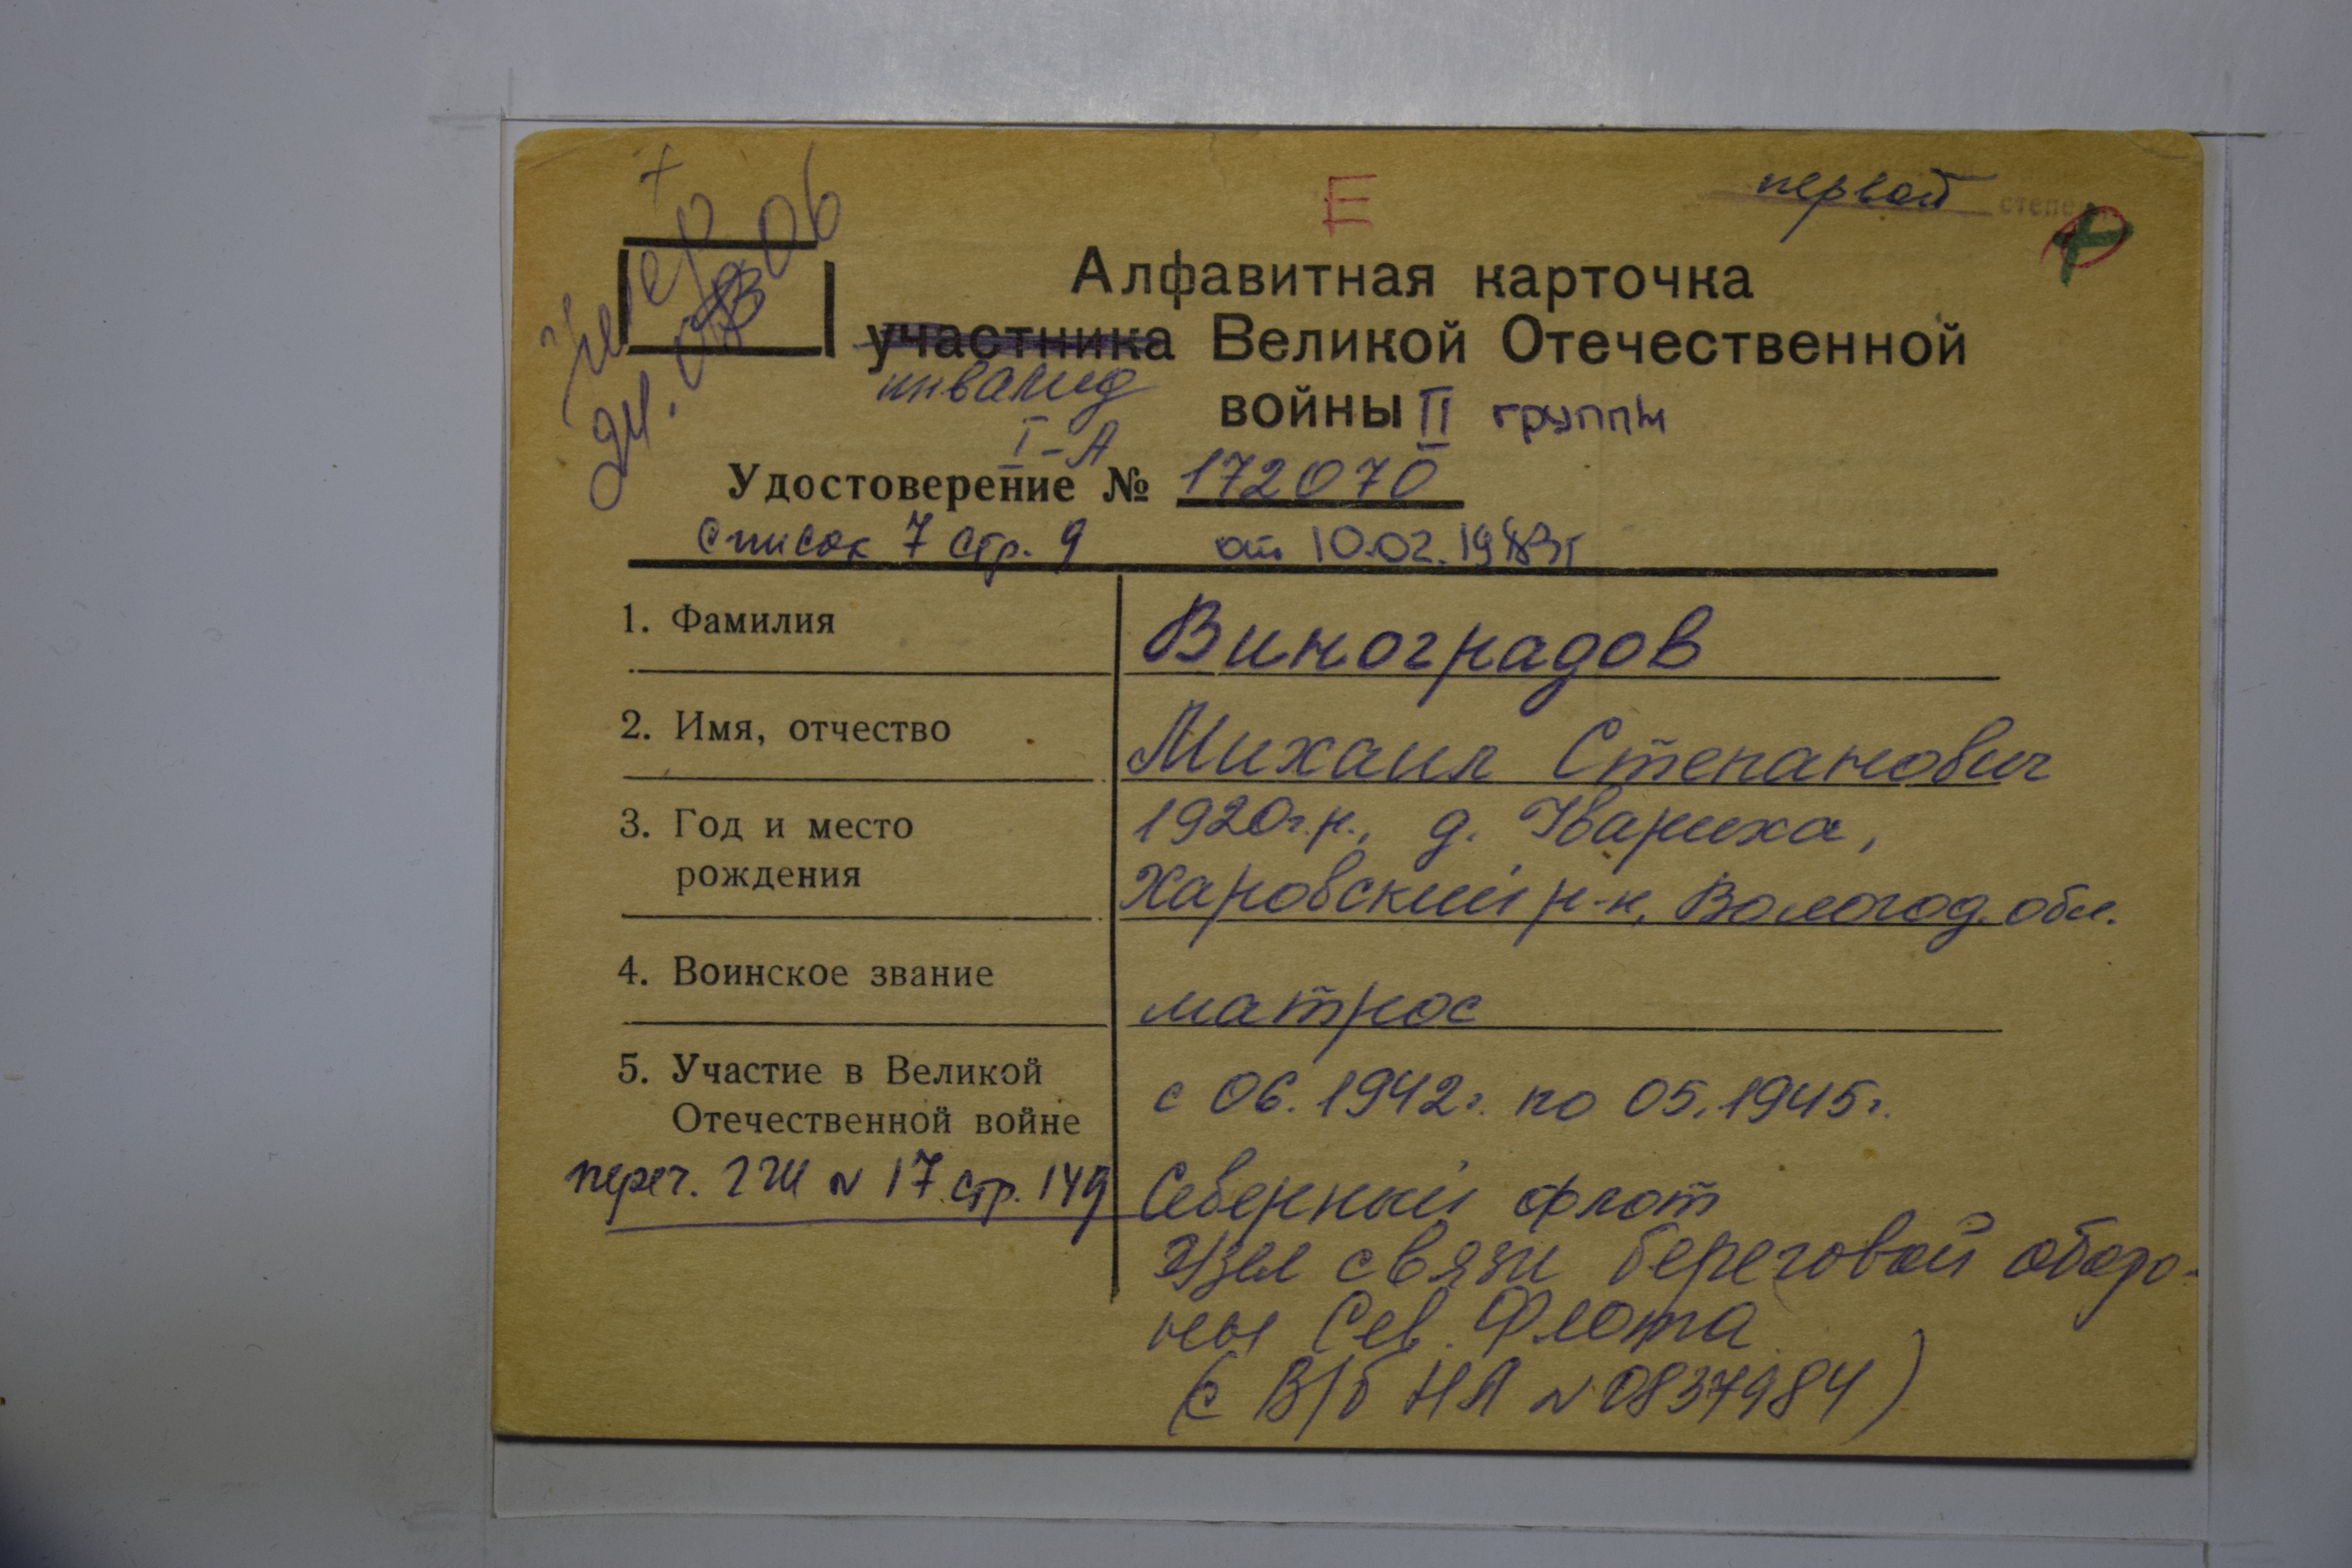 +
Е
первой степе
Алфавитная карточка
участника Великой Отечественной
инвалид
войны II группы
I-А
Удостоверение № 172070
список 7 стр. 9 от 10.02.1983г
1. Фамилия Виноградов
2. Имя, отчество Михаил Степанович
3. Год и место 1920г.р., д. Ивариха,
рождения Харовский р-н, Вологод. обл.
4. Воинское звание матрос
5. Участие в Великой с 06.1942г. по 05.1945г.
Отечественной войне
переч. ГШ N 17 стр. 149 Северный флот
Узел связи береговой оборо-
ны Сев. Флота
(с В/б НА N 0837984)